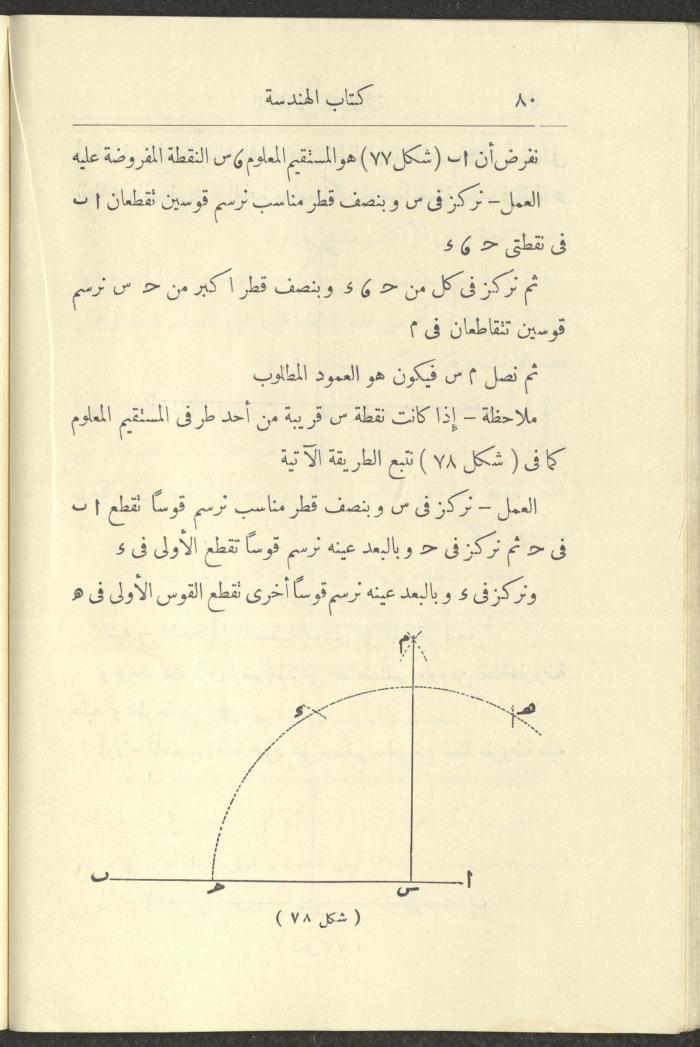 ٨٠ كتاب الهندسة
نفرض أن ا ب (شكل ٧٧) هو المستقيم المعلوم و س النقطة المفروضة عليه
العمل – نركز فى س وبنصف قطر مناسب نرسم قوسين تقطعان ا ب
فى نقطتى ح و ء
ثم نركز فى كل من ح و ء وبنصف قطر اكبر من ح س نرسم
قوسين تتقاطعان فى م
ثم نصل م س فيكون هو العمود المطلوب
ملاحظة – إذا كانت نقطة س قريبة من أحد طرفى المستقيم المعلوم
كما فى ( شكل ٧٨ ) نتبع الطريقة الآتية
العمل – نركز فى س وبنصف قطر مناسب نرسم قوسًا تقطع ا ب
فى ح ثم نركز فى ح وبالبعد عينه نرسم قوسًا تقطع الأولى فى ء
ونركز فى ء وبالبعد عينه نرسم قوسًا أخرى تقطع القوس الأولى فى ه
م
ه
ء
ا
س
ح
ب
( شكل ٧٨ )